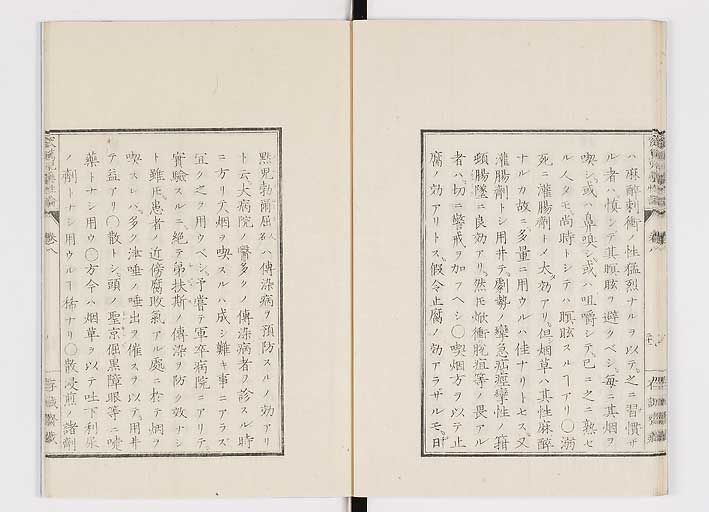 ハ麻酔刺衝ノ性猛烈ナルヲ以テ之ニ習慣ザ
ル者ハ慎ンデ其瞑眩ヲ避クベシ毎ニ其烟ヲ
喫シ或ハ鼻嗅シ或ハ咀嚼シテ已ニ之ニ熟セ
ル人タモ尚時トシテハ瞑眩スルヿアリ〇溺
死ニ灌腸劑トメ大効アリ但シ烟草ハ其性麻酔
ナルカ故ニ多量ニ用ウルハ佳ナリトセス又
灌腸劑トシ用井テ劇勢ノ攣急疝痙攣性ノ
頓腸墜ニ良効アリ然モ焮衝脱疽等ノ畏アル
者ハ切ニ警戒ヲ加フヘシ〇喫烟方ヲ以テ止
腐ノ効アリトス假令止腐ノ効アラザルモ日
點兒勃爾屈ハ傳染病ヲ預防スルノ効アリ
ト云大病院ノ醫多クノ傳染病者ヲ診スル時
ニ方リテ烟ヲ喫スルハ成シ難キ事ニアラズ
宜ク之ヲ用ウベシ予嘗テ軍卒病院ニアリテ
實驗スルニ絶テ弟扶斯ノ傳染ヲ防ク效ナシ
ト雖モ患者ノ近傍腐敗氣アル處ニ於テ烟ヲ
喫スレバ多ク津唾ノ唾出ヲ催スヲ以テ用井
テ益アリ〇散トシ頭ノ聖京倔黒障眼等ニ嚏
藥トナシ用ウ〇方今ハ烟草ヲ以テ吐下利尿
ノ劑トナシ用ウルヿ稀ナリ〇散浸煎ノ諸劑
卷八